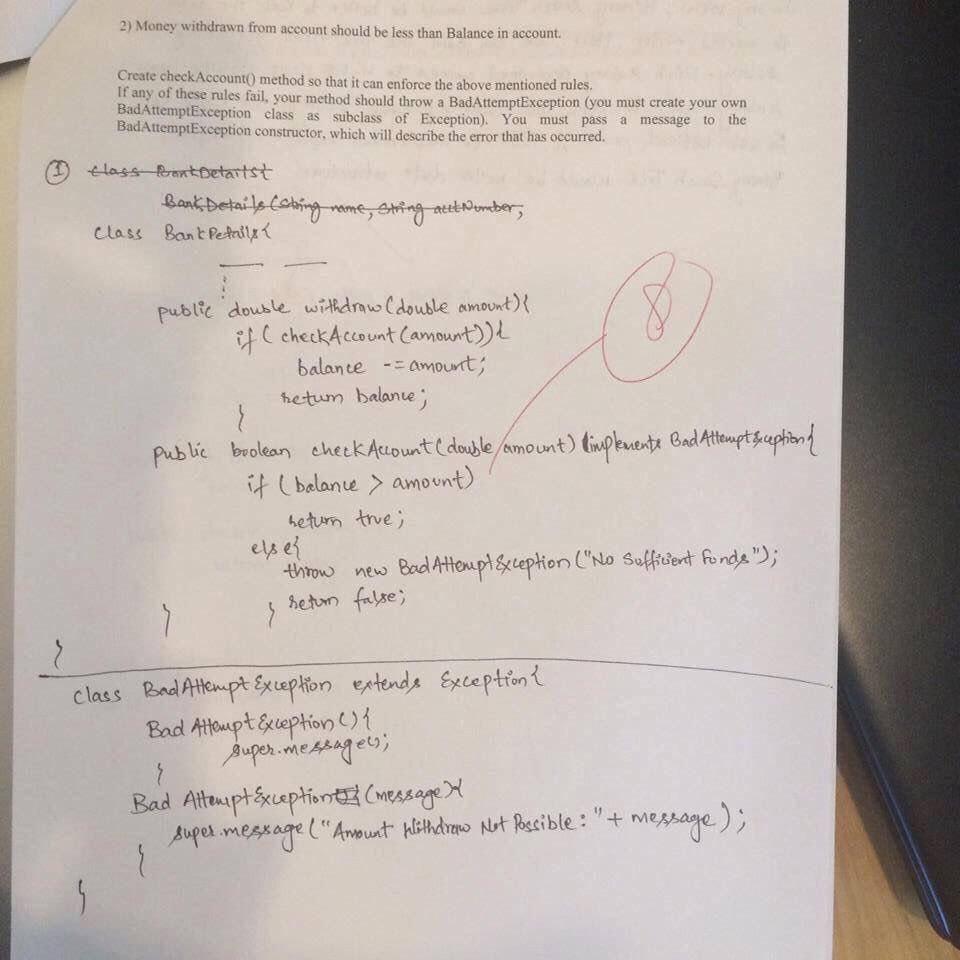 2) Money withdrawn from account should be less than Balance in account.
Create checkAccount() method so that it can enforce the above mentioned rules.
If any of these rules fail, your method should throw a BadAttemptException (you must create your own
BadAttemptException class as subclass of Exception). You must pass a message to the
BadAttemptException constructor, which will describe the error that has occurred.
① class BankDetails{
BankDetails(String name, String acctNumber,
class BankDetails{
public double withdraw(double amount){
if( checkAccount(amount)){
balance -= amount;
return balance;
}
public boolean checkAccount(double amount) implements BadAttemptException{
if (balance > amount)
return true;
else{
throw new BadAttemptException("No Sufficient Funds");
return false;
} }
}
class BadAttemptException extends Exception{
Bad AttemptException(){
super.message();
}
Bad AttemptException(message){
super.message("Amount Withdraw Not Possible: "+ message);
}
}
8